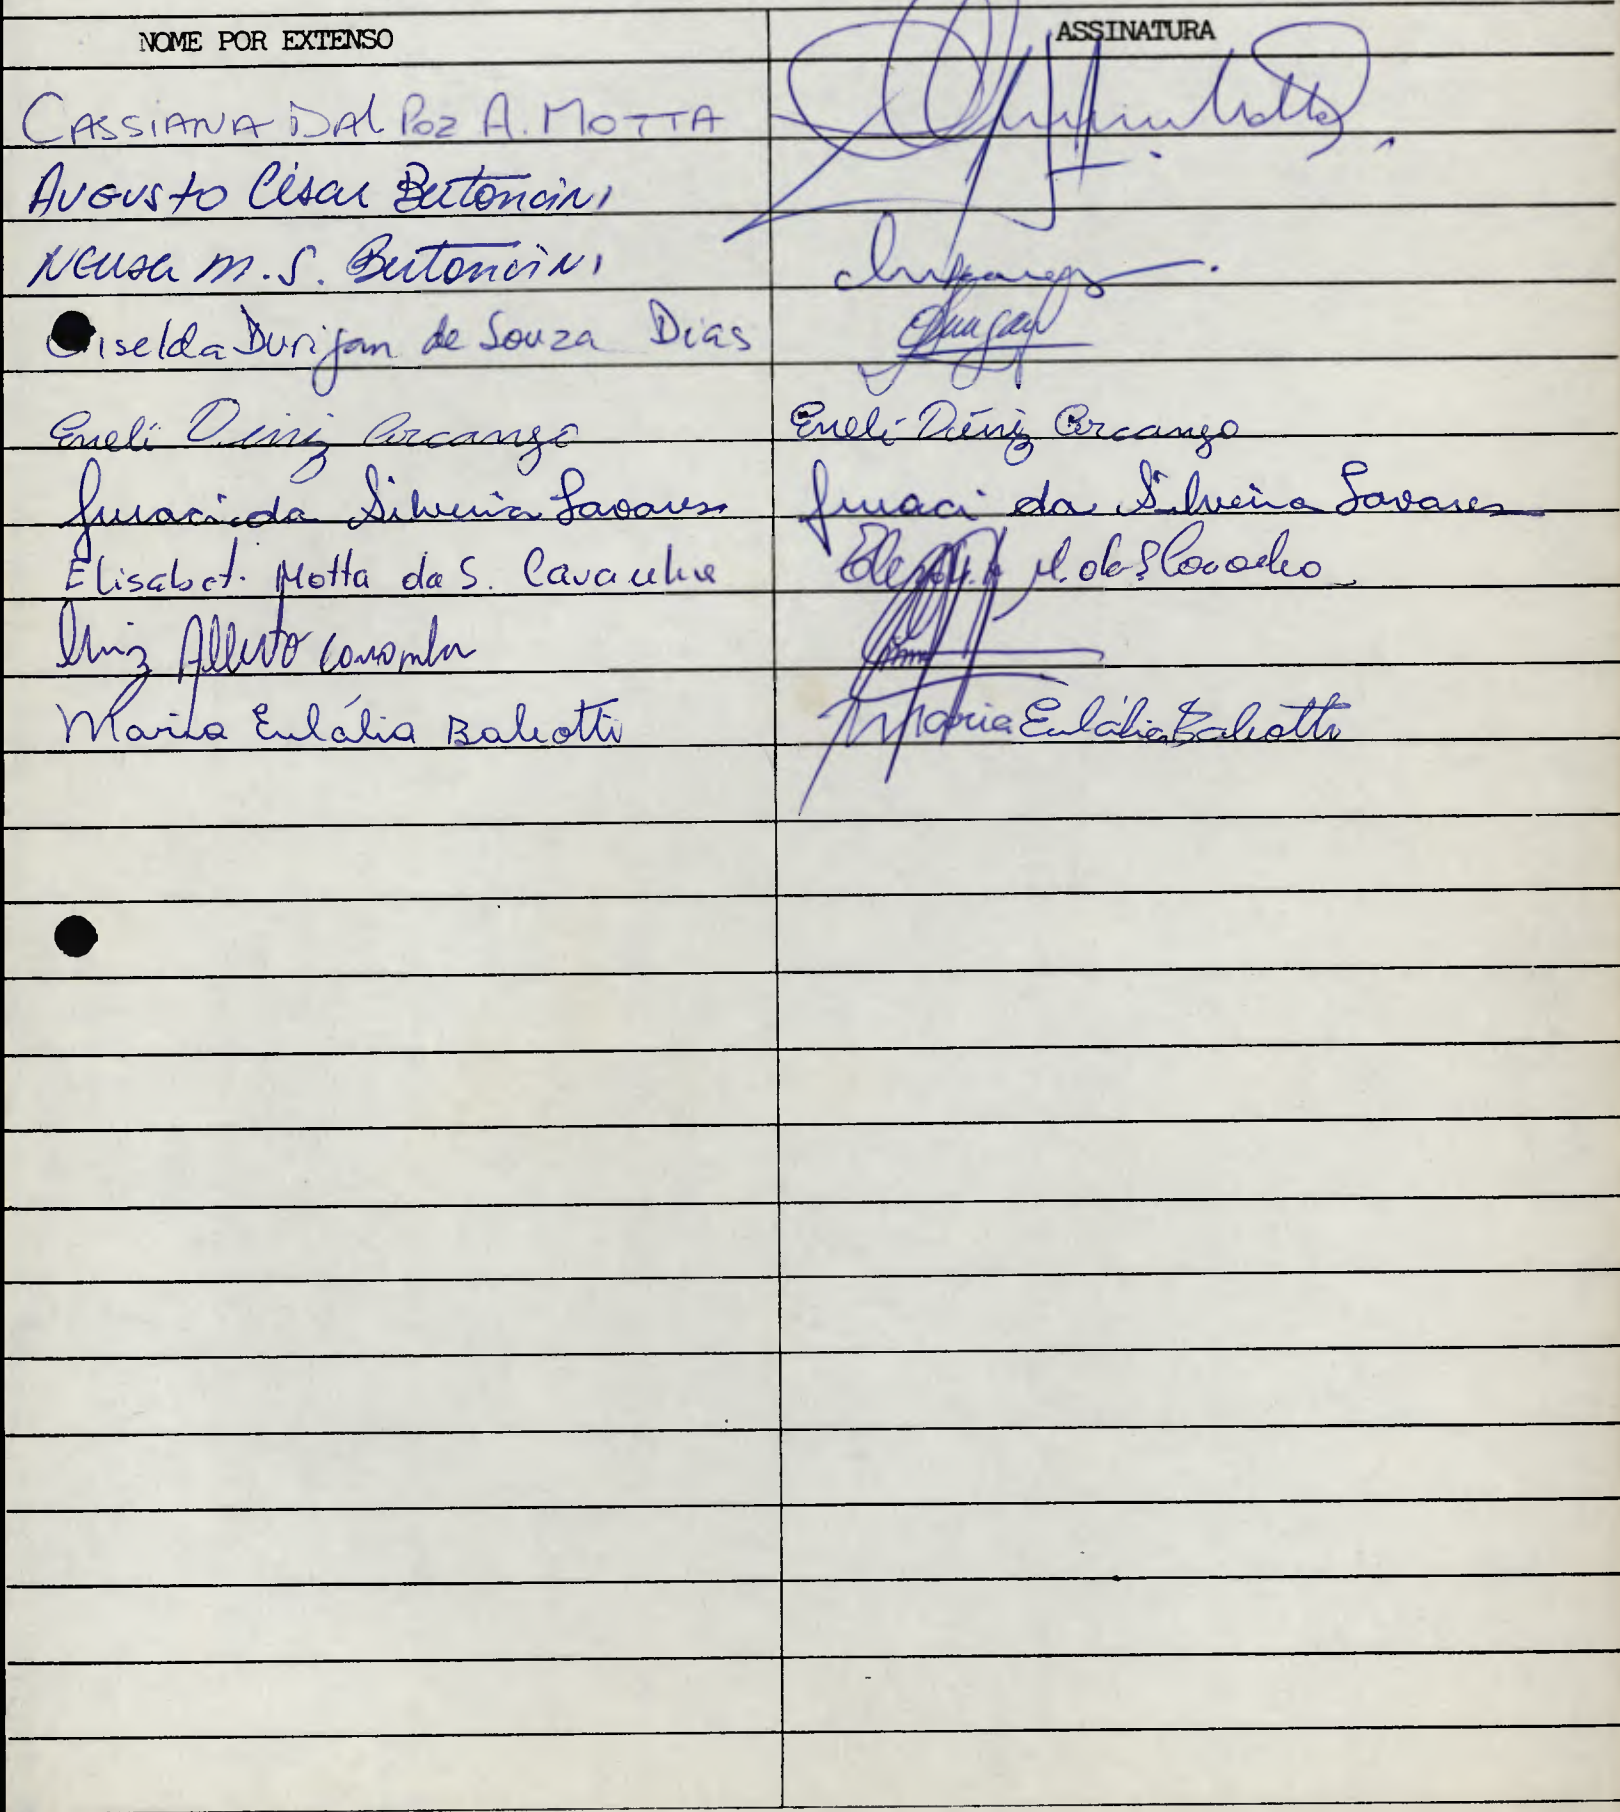 NOME POR EXTENSO ASSINATURA
CASSIANA DAL POZ A. MOTTA
AUGUSTO César Bertoncini
NEUSA M. S. Bertoncini
Giselda Durigan de Souza Dias
Eneli Diniz Arcango Eneli Diniz Arcango
Juraci da Silveira Tavares Juraci da Silveira Tavares
Elisabet. Motta da S. M. da S.
Luiz Alberto
Maria Eulália Baleotti Maria Eulália Baleotti